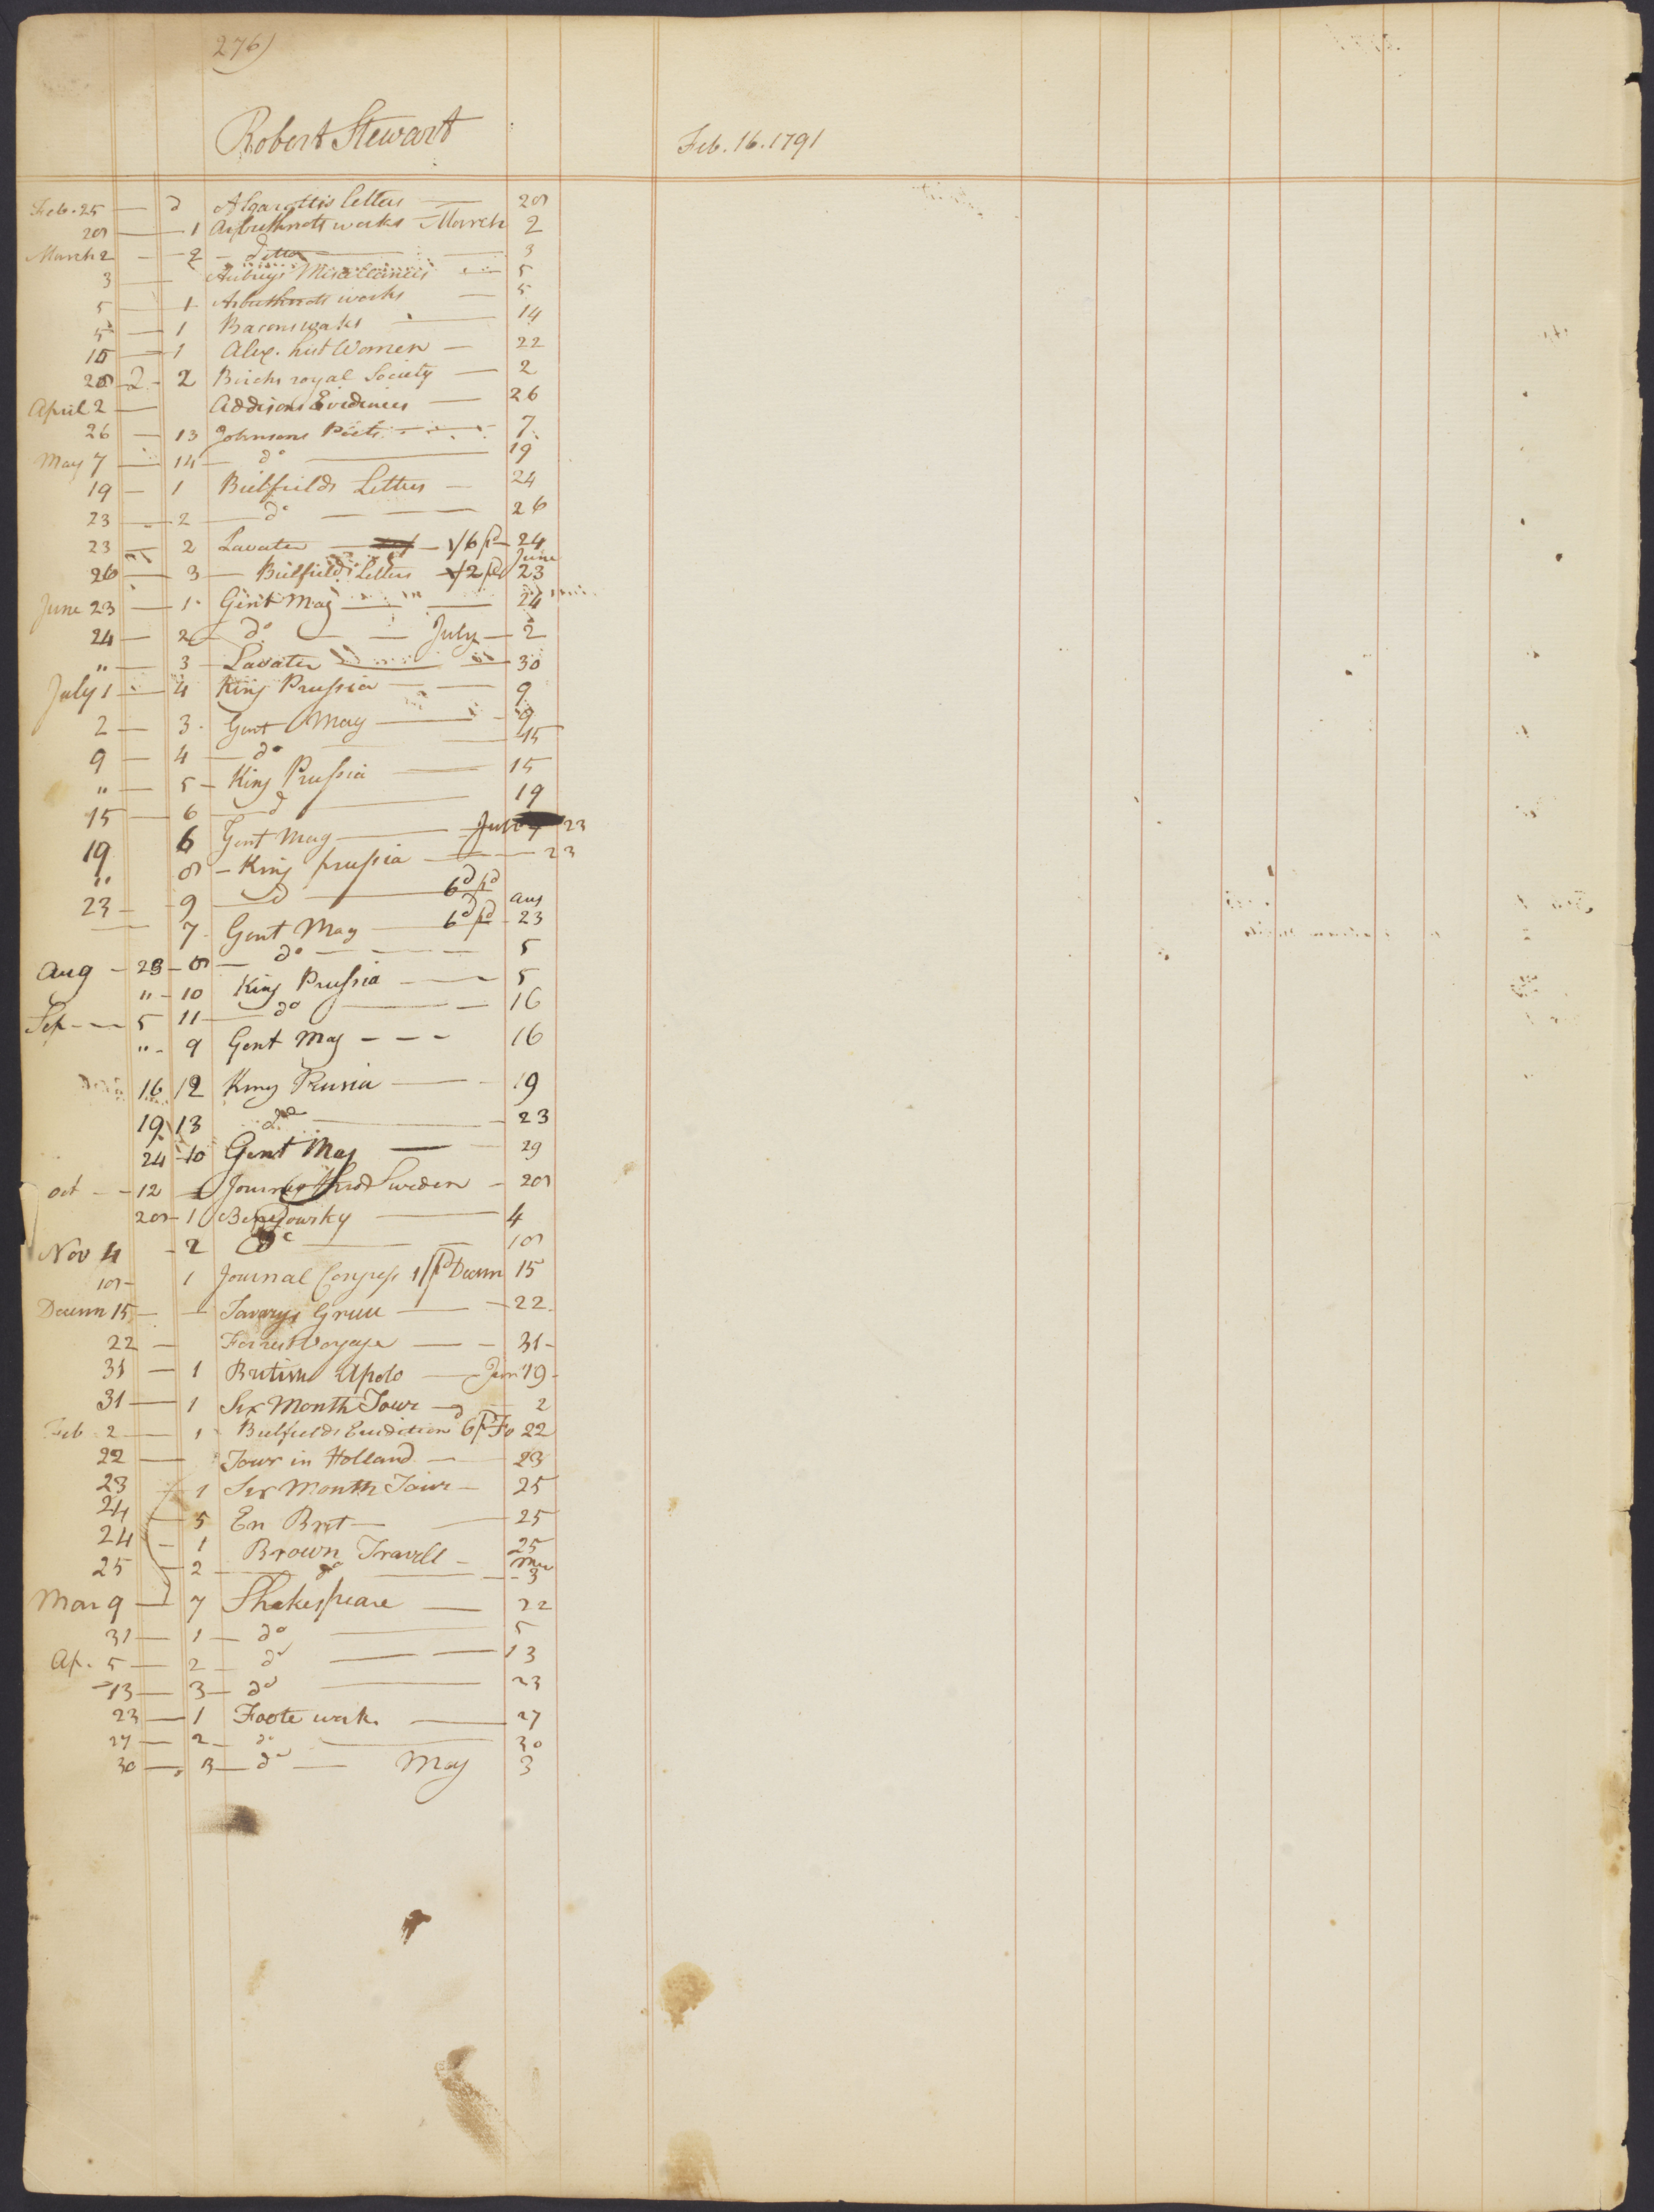 276)
Robert Stewart Feb. 16. 1791
Feb. 25 — d Algarottis letters — 28
28 — 1 Arbuthnotts works — March 2
March 2 — 2 — ditto — 3
3 — Aubreys Miscellanies — 5
5 — 1 Arbuthnotts works — 5
5 — 1 Bacons works — 14
15 — 1 Alex. hist Women — 22
28 — 2 - 2 Birchs royal Society — 2
April 2 — Addisons Evidences — 26
26 — 13 Johnsons Poets — 7
May 7 — 14 — do — 19
19 — 1 Bielfields Letters — 24
23 — 2 — do — 26
23 — 2 Lavater — 1/6 pd — 24
26 — 3 — Bielfields Letters — 1/2 pd June 23
June 23 — 1 Gent Mag — 24
24 — 2 — do — July — 2
" — 3 — Lavater — 30
July 1 — 4 King Prussia — 9
2 — 3 Gent Mag — 9
9 — 4 — do — 15
" — 5 — King Prussia — 15
15 — 6 — d — 19
19 6 Gent Mag — July 23
" 8 — King prussia — 23
23 — 9 — d — 6d pd
— 7 Gent Mag — 6d pd — Aug 23
Aug — 23 — 8 — do — 5
" — 10 King Prussia — 5
Sep — 5 11 — do — 16
" — 9 Gent Mag — — — 16
16 12 King Prusia — 19
19 13 do — 23
24 — 10 Gent Mag — 29
Oct — 12 1 Journey thro Sweden — 28
28 — 1 Benyowsky — 4
Nov 4 — 2 do — 18
18 — 1 Journal Congress 1/ pd Decem 15
Decem 15 — — Savarys Greece — 22
22 — Forrest Voyage — 31 —
31 — 1 British Apolo — Jan 19 —
31 — 1 Six Month Tour — 2
Feb 2 — 1 Bielfields Erudition 6d pd Fe 22
22 — Tour in Holland — 23
23 — 1 Six Month Tour — 25
24 — 5 En Brit — 25
24 — 1 Brown Travell — 25
25 — 2 — do — Mar 3
Mar 9 — 7 Shakespeare — 22
31 — 1 — do — 5
Ap. 5 — 2 — do — 13
13 — 3 — do — 23
23 — 1 Foote work — 27
27 — 2 — do — 30
30 — 3 — do — May 3